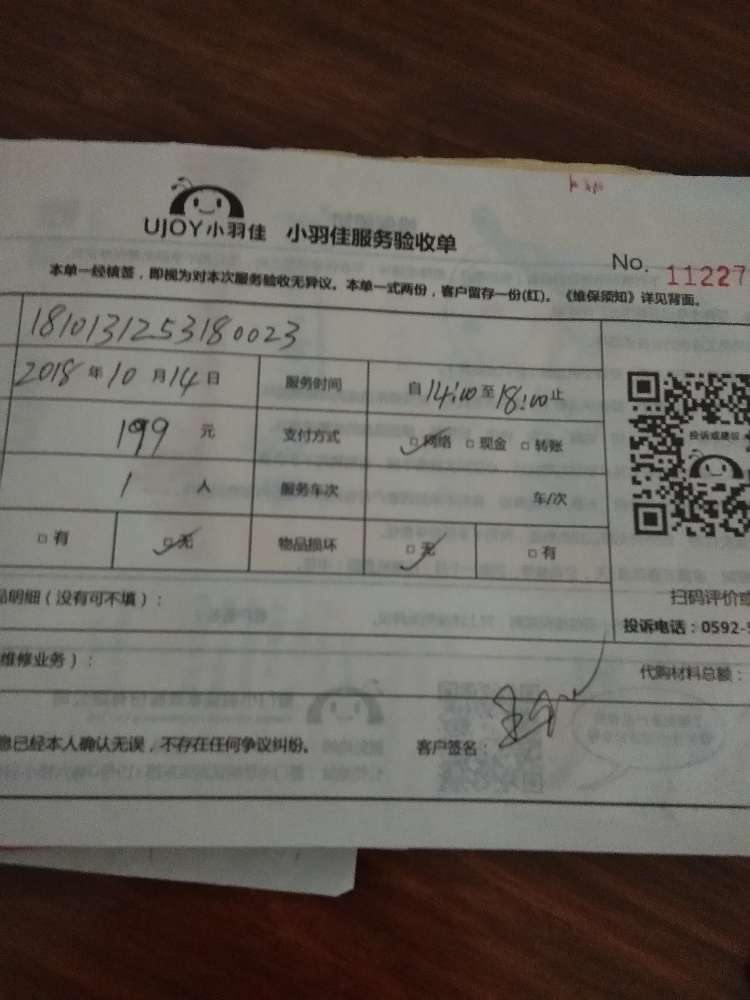 UJOY小羽佳 小羽佳服务验收单
No. 11227
本单一经填签，即视为对本次服务验收无异议。本单一式两份，客户留存一份(红)。《维保须知》详见背面。
1810131253180023
2018 年 10 月 14 日 服务时间 自 14:00 至 18:00 止
199 元 支付方式 □网络 □现金 □转账
投诉或建议
1 人 服务车次 车/次
□有 □无 物品损坏 □无 □有
品明细（没有可不填）：
扫码评价或
投诉电话：0592-5
维修业务）：
代购材料总额：
息已经本人确认无误，不存在任何争议纠纷。 客户签名：